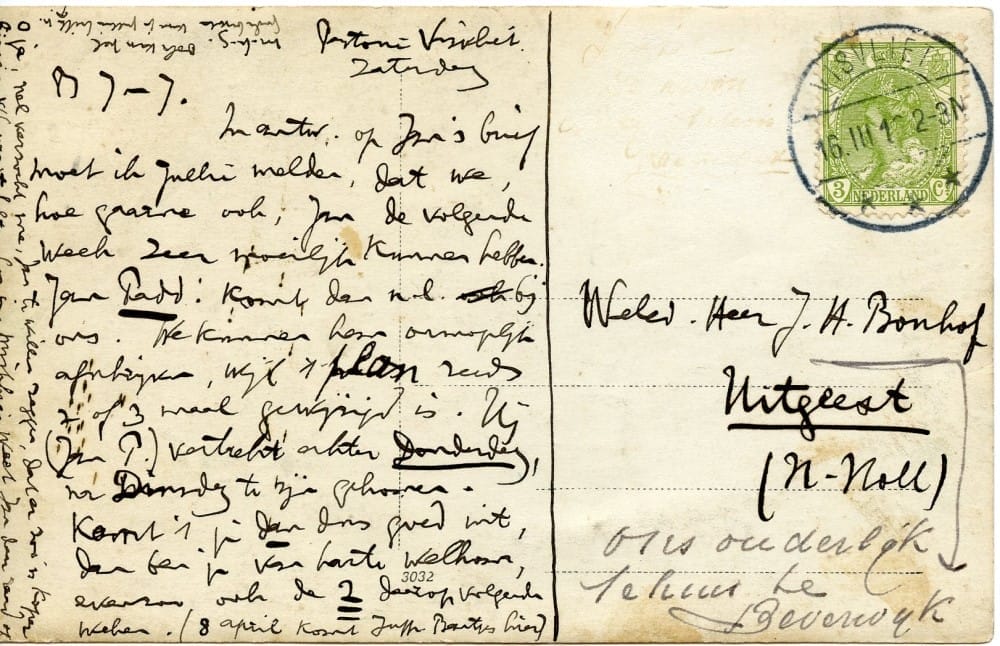 Pastorie Visvliet.
Zaterdag
In antw. op Jan's brief
moet ik jullie melden, dat we,
hoe gaarne ook, Jan de volgende
week zeer moeilijk kunnen hebben.
Jan Tadd: komt dan n.l. bij
ons. We kunnen hem onmogelijk
afschrijven, wijl 't plan reeds
2 of 3 maal gewijzigd is. Hij
(Jan T.) vertrekt echter Donderdag,
na Dinsdag te zijn gekomen.
Komt 't je dan dus goed uit,
dan ben je van harte welkom,
evenzoo ook de 2 daarop volgende
weken. (8 april komt Juffr. Bentjes hier)
O ja, nel verzocht me, Jan te willen zeggen, dat er
3032
VISVLIET
16.III.1 2-3N
3 NEDERLAND Ct
Weled. Heer J. H. Bonhof
Uitgeest
(N-Holl)
ons ouderlijk
tehuis te
Beverwijk